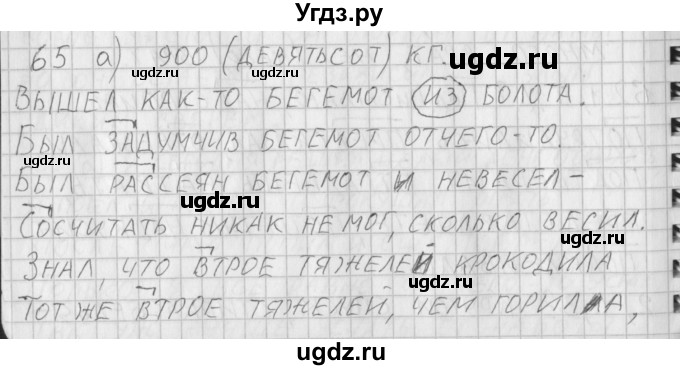 Угдз.ру
65 а) 900 (ДЕВЯТЬСОТ) КГ.
ugdz.ru ugdz.ru ugdz.ru
ВЫШЕЛ КАК-ТО БЕГЕМОТ ИЗ БОЛОТА.
БЫЛ ЗАДУМЧИВ БЕГЕМОТ ОТЧЕГО-ТО.
ugdz.ru ugdz.ru ugdz.ru
БЫЛ РАССЕЯН БЕГЕМОТ И НЕВЕСЕЛ –
СОСЧИТАТЬ НИКАК НЕ МОГ, СКОЛЬКО ВЕСИЛ.
ugdz.ru ugdz.ru ugdz.ru
ЗНАЛ, ЧТО ВТРОЕ ТЯЖЕЛЕЙ КРОКОДИЛА
ТОТ ЖЕ ВТРОЕ ТЯЖЕЛЕЙ, ЧЕМ ГОРИЛЛА,
ugdz.ru ugdz.ru
ugdz.ru